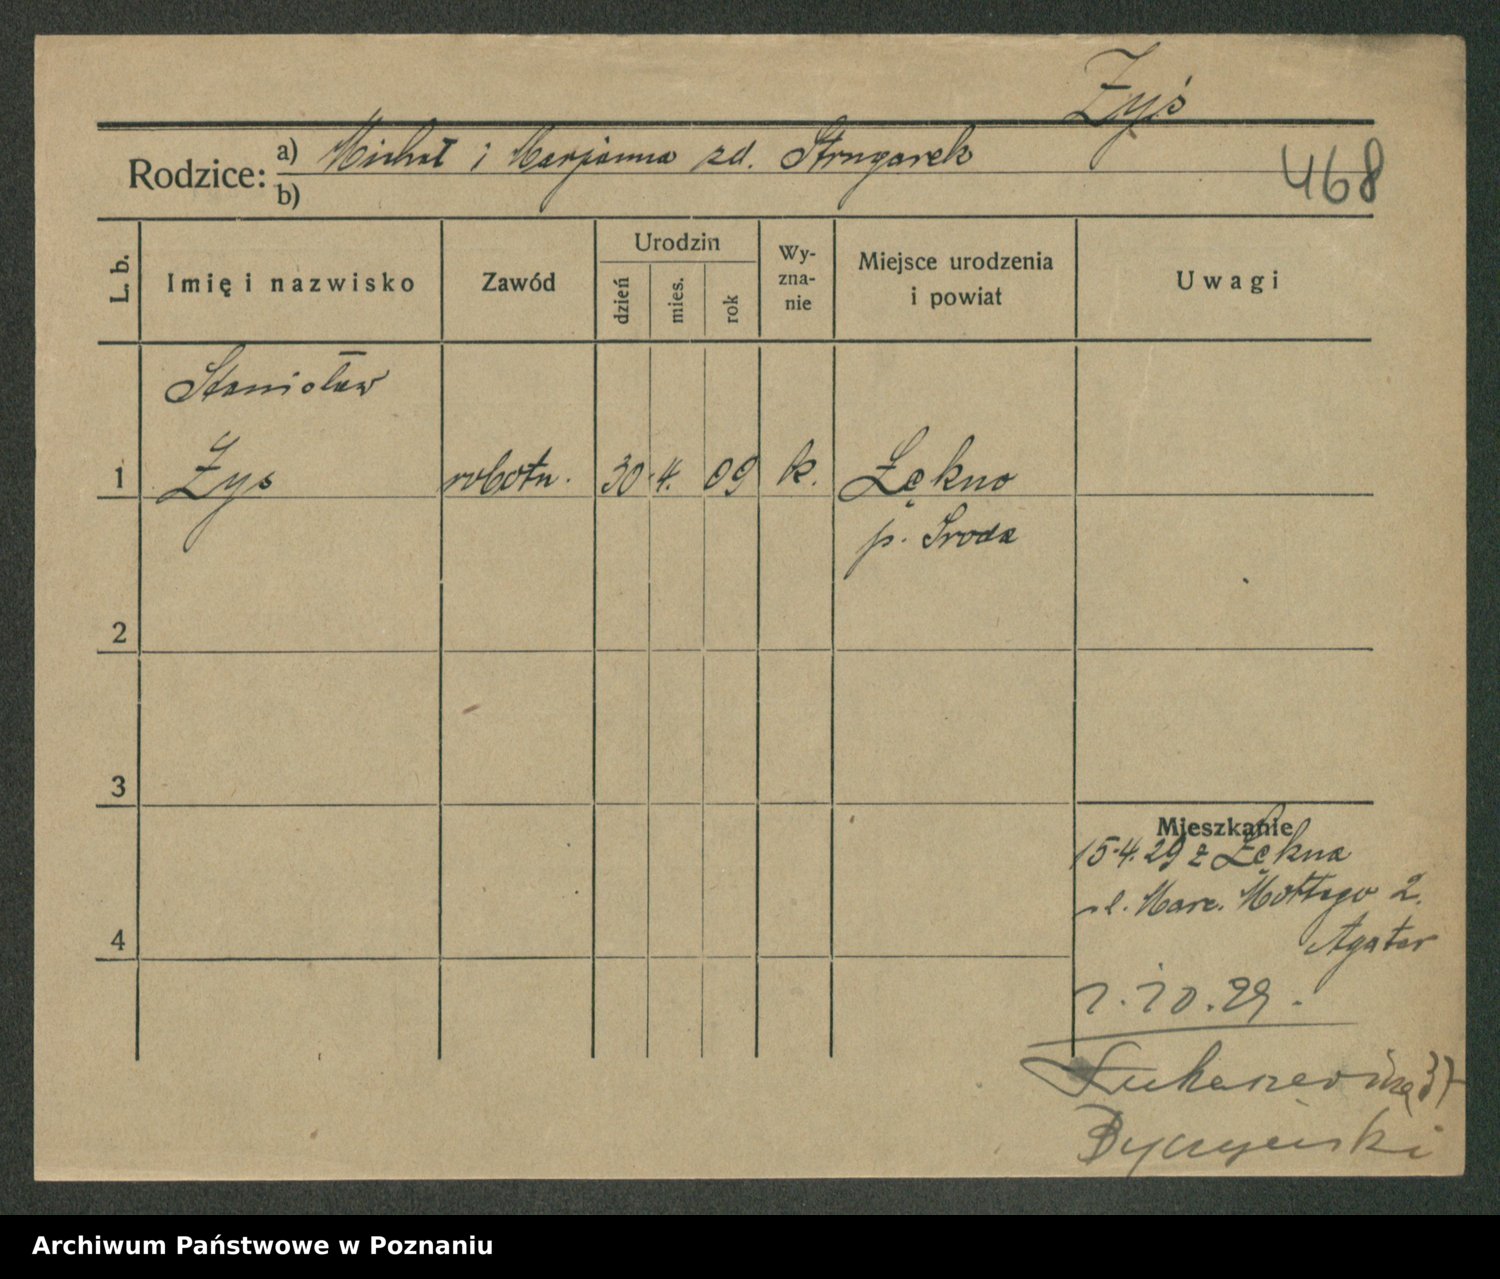 Żyś
Rodzice: a) Michał i Marjanna zd. Strugarek
b)
468
L. b.
Imię i nazwisko
Zawód
Urodzin
dzień
mies.
rok
Wy-
zna-
nie
Miejsce urodzenia
i powiat
Uwagi
Stanisław
1 Żys robotn. 30 . 4. 09 k. Łękno
p. Sroda
2
3
Mieszkanie
15.4.29 z Łękna
ul. Marc. Mottego 2.
4
1.10.29.
Łukaszewicza 37
Archiwum Państwowe w Poznaniu